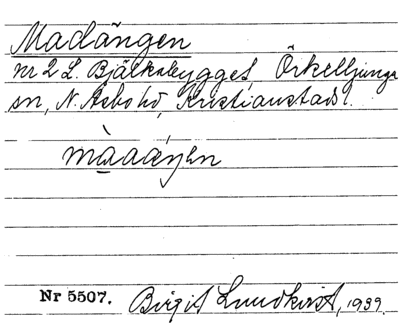 Madängen
nr 2 L. Bjälkabygget, Örkelljunga
sn, N. Åsbo hd, Kristianstads l.
Nr 5507. Birgit Lundkvist, 1939.